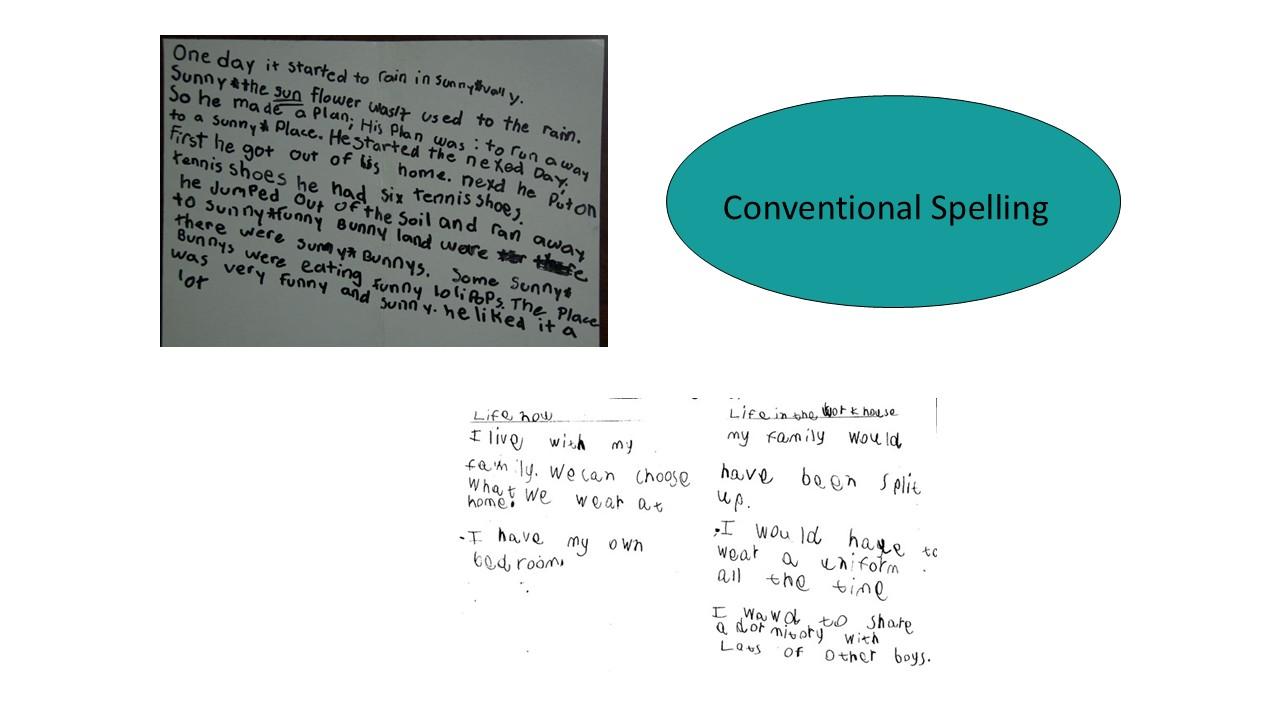 One day it started to rain in sunny*vally.
Sunny*the sun flower was't used to the rain.
So he made a Plan; His Plan was : to run away
to a sunny* Place. He started the nexed Day.
First he got out of his home. nexd he Put on
tennis shoes he had six tennis shoes.
he Jumped out of the soil and ran away
to sunny*funny Bunny land were
there were sunny* Bunnys. Some sunny*
Bunnys were eating funny loliPoPs. The Place
was very funny and sunny. he liked it a
lot
Conventional Spelling
Life now
I live with my
family. We can choose
What we wear at
home.
-I have my own
bedroom.
Life in the workhouse
my family would
have been split
up.
I would have to
wear a uniform
all the time
I wawd to share
a dormitory with
Lats of other boys.